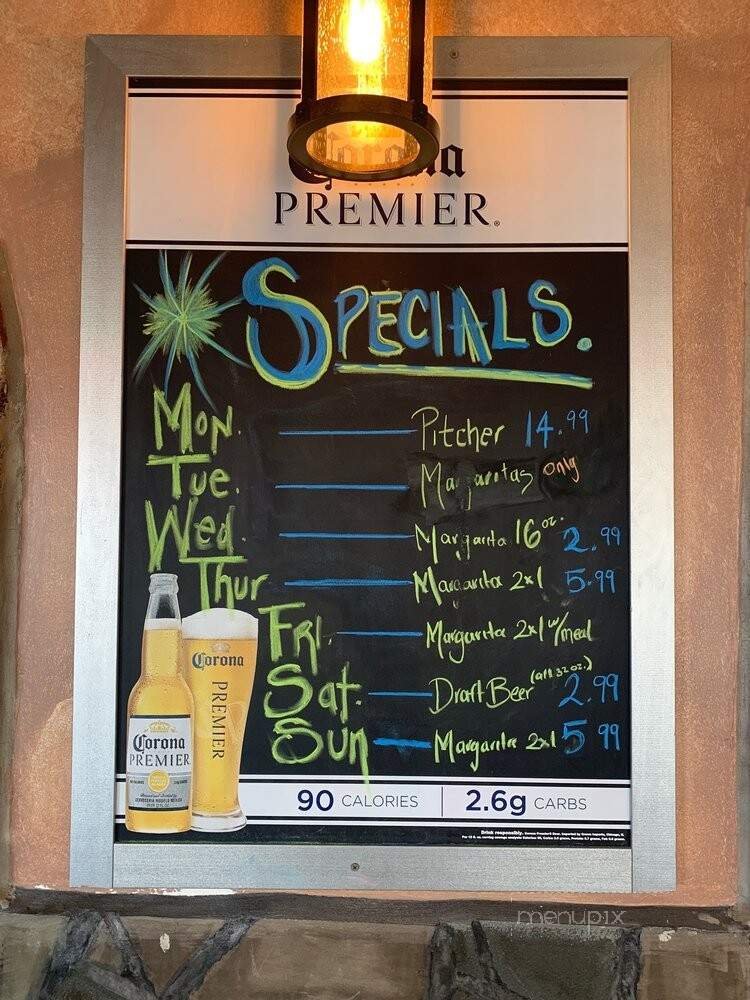 Corona
PREMIER.
SPECIALS.
Mon. Pitcher 14.99
Tue. Margaritas only
Wed. Margarita 16 oz. 2.99
Thur Margarita 2x1 5.99
FRI. Margarita 2x1 w/meal
Sat. Draft Beer (all 32 oz.) 2.99
Sun Margarita 2x1 5.99
Corona
PREMIER
Corona
PREMIER
90 CALORIES 2.6g CARBS
Drink responsibly.
menupix